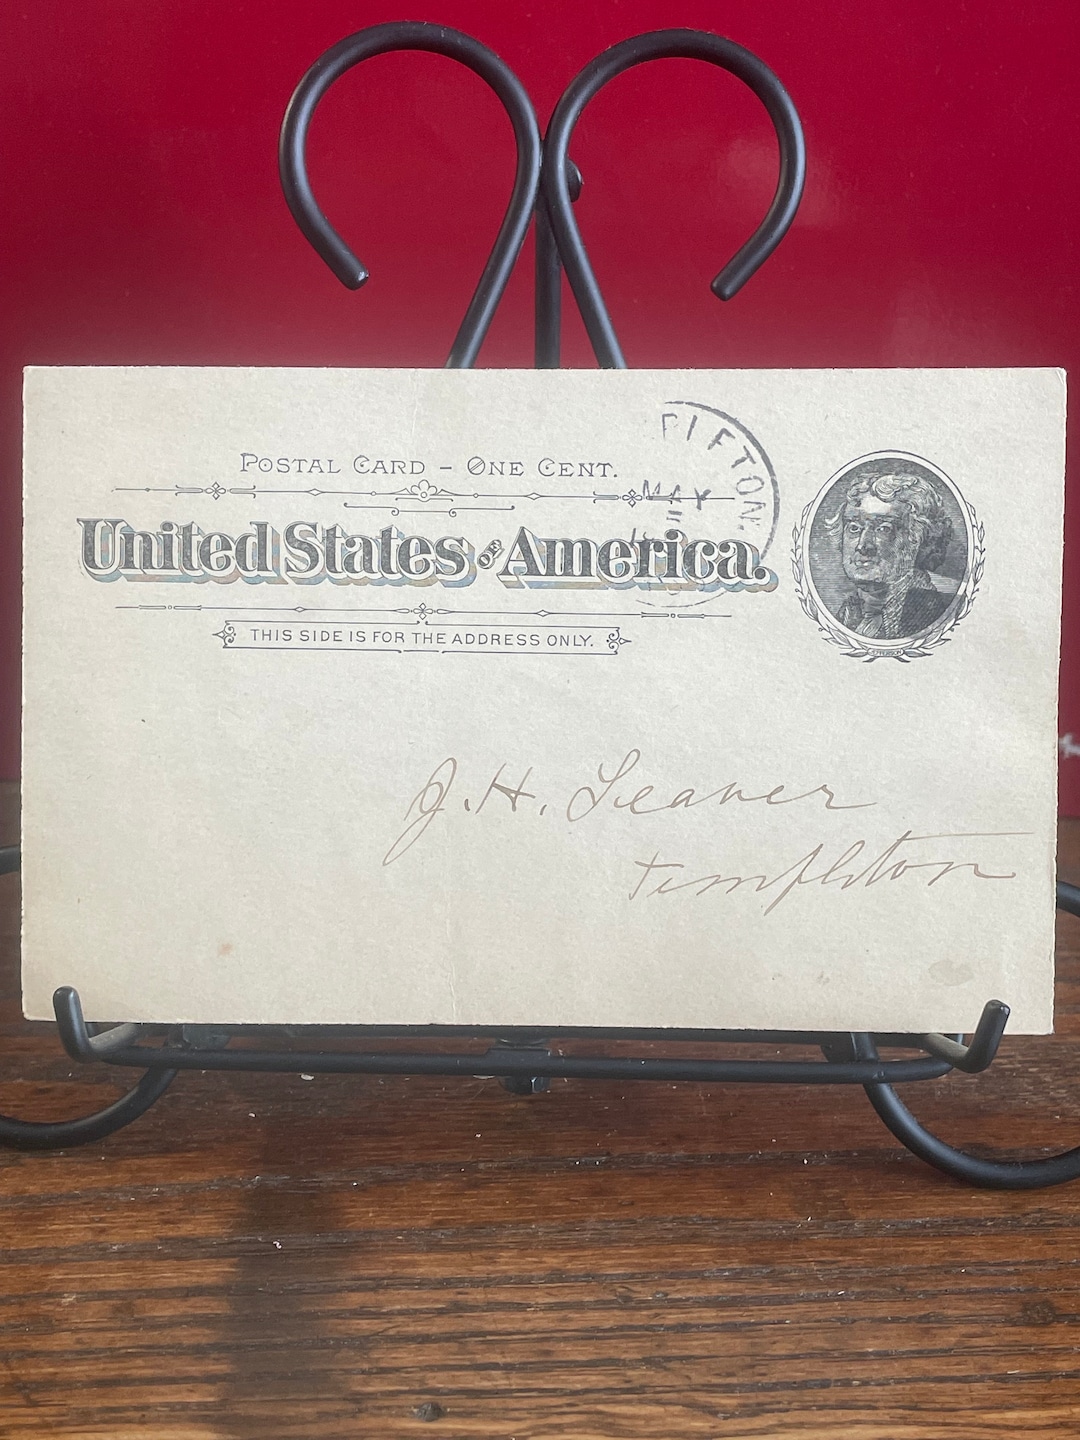 POSTAL CARD – ONE CENT.
United States OF America.
THIS SIDE IS FOR THE ADDRESS ONLY.
MAY
JEFFERSON
J. H. Leaver
Templeton